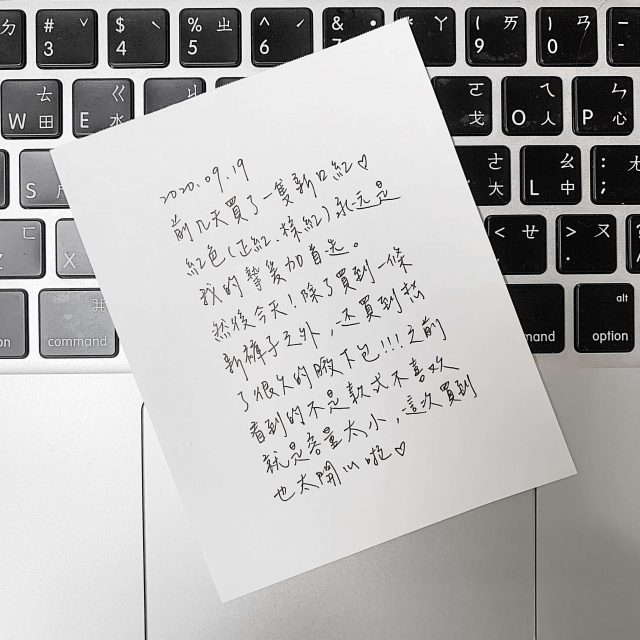 ㄉ # 3 ˇ $ 4 ˋ % 5 ㄓ ^ 6 ˊ & 7 * ㄚ ( 9 ㄞ ) 0 ㄢ -
W ㄊ 田 E ㄍ 水 ㄐ ㄛ 戈 O ㄟ 人 P ㄣ 心
S ㄜ 大 L ㄠ 中 : ; ㄤ
ㄈ Z X ㄌ < , ㄝ > . ㄡ ?
command ⌘ command alt option
2020.09.19
前几天買了一隻新口紅♡
紅色(正紅、橘紅)永远是
我的擊後加首选。
然後今天!除了買到一條
新褲子之外,还買到想
了很久的腋下包!!!之前
看到的不是款式不喜欢
就是容量太小,這次買到
也太開心啦♡